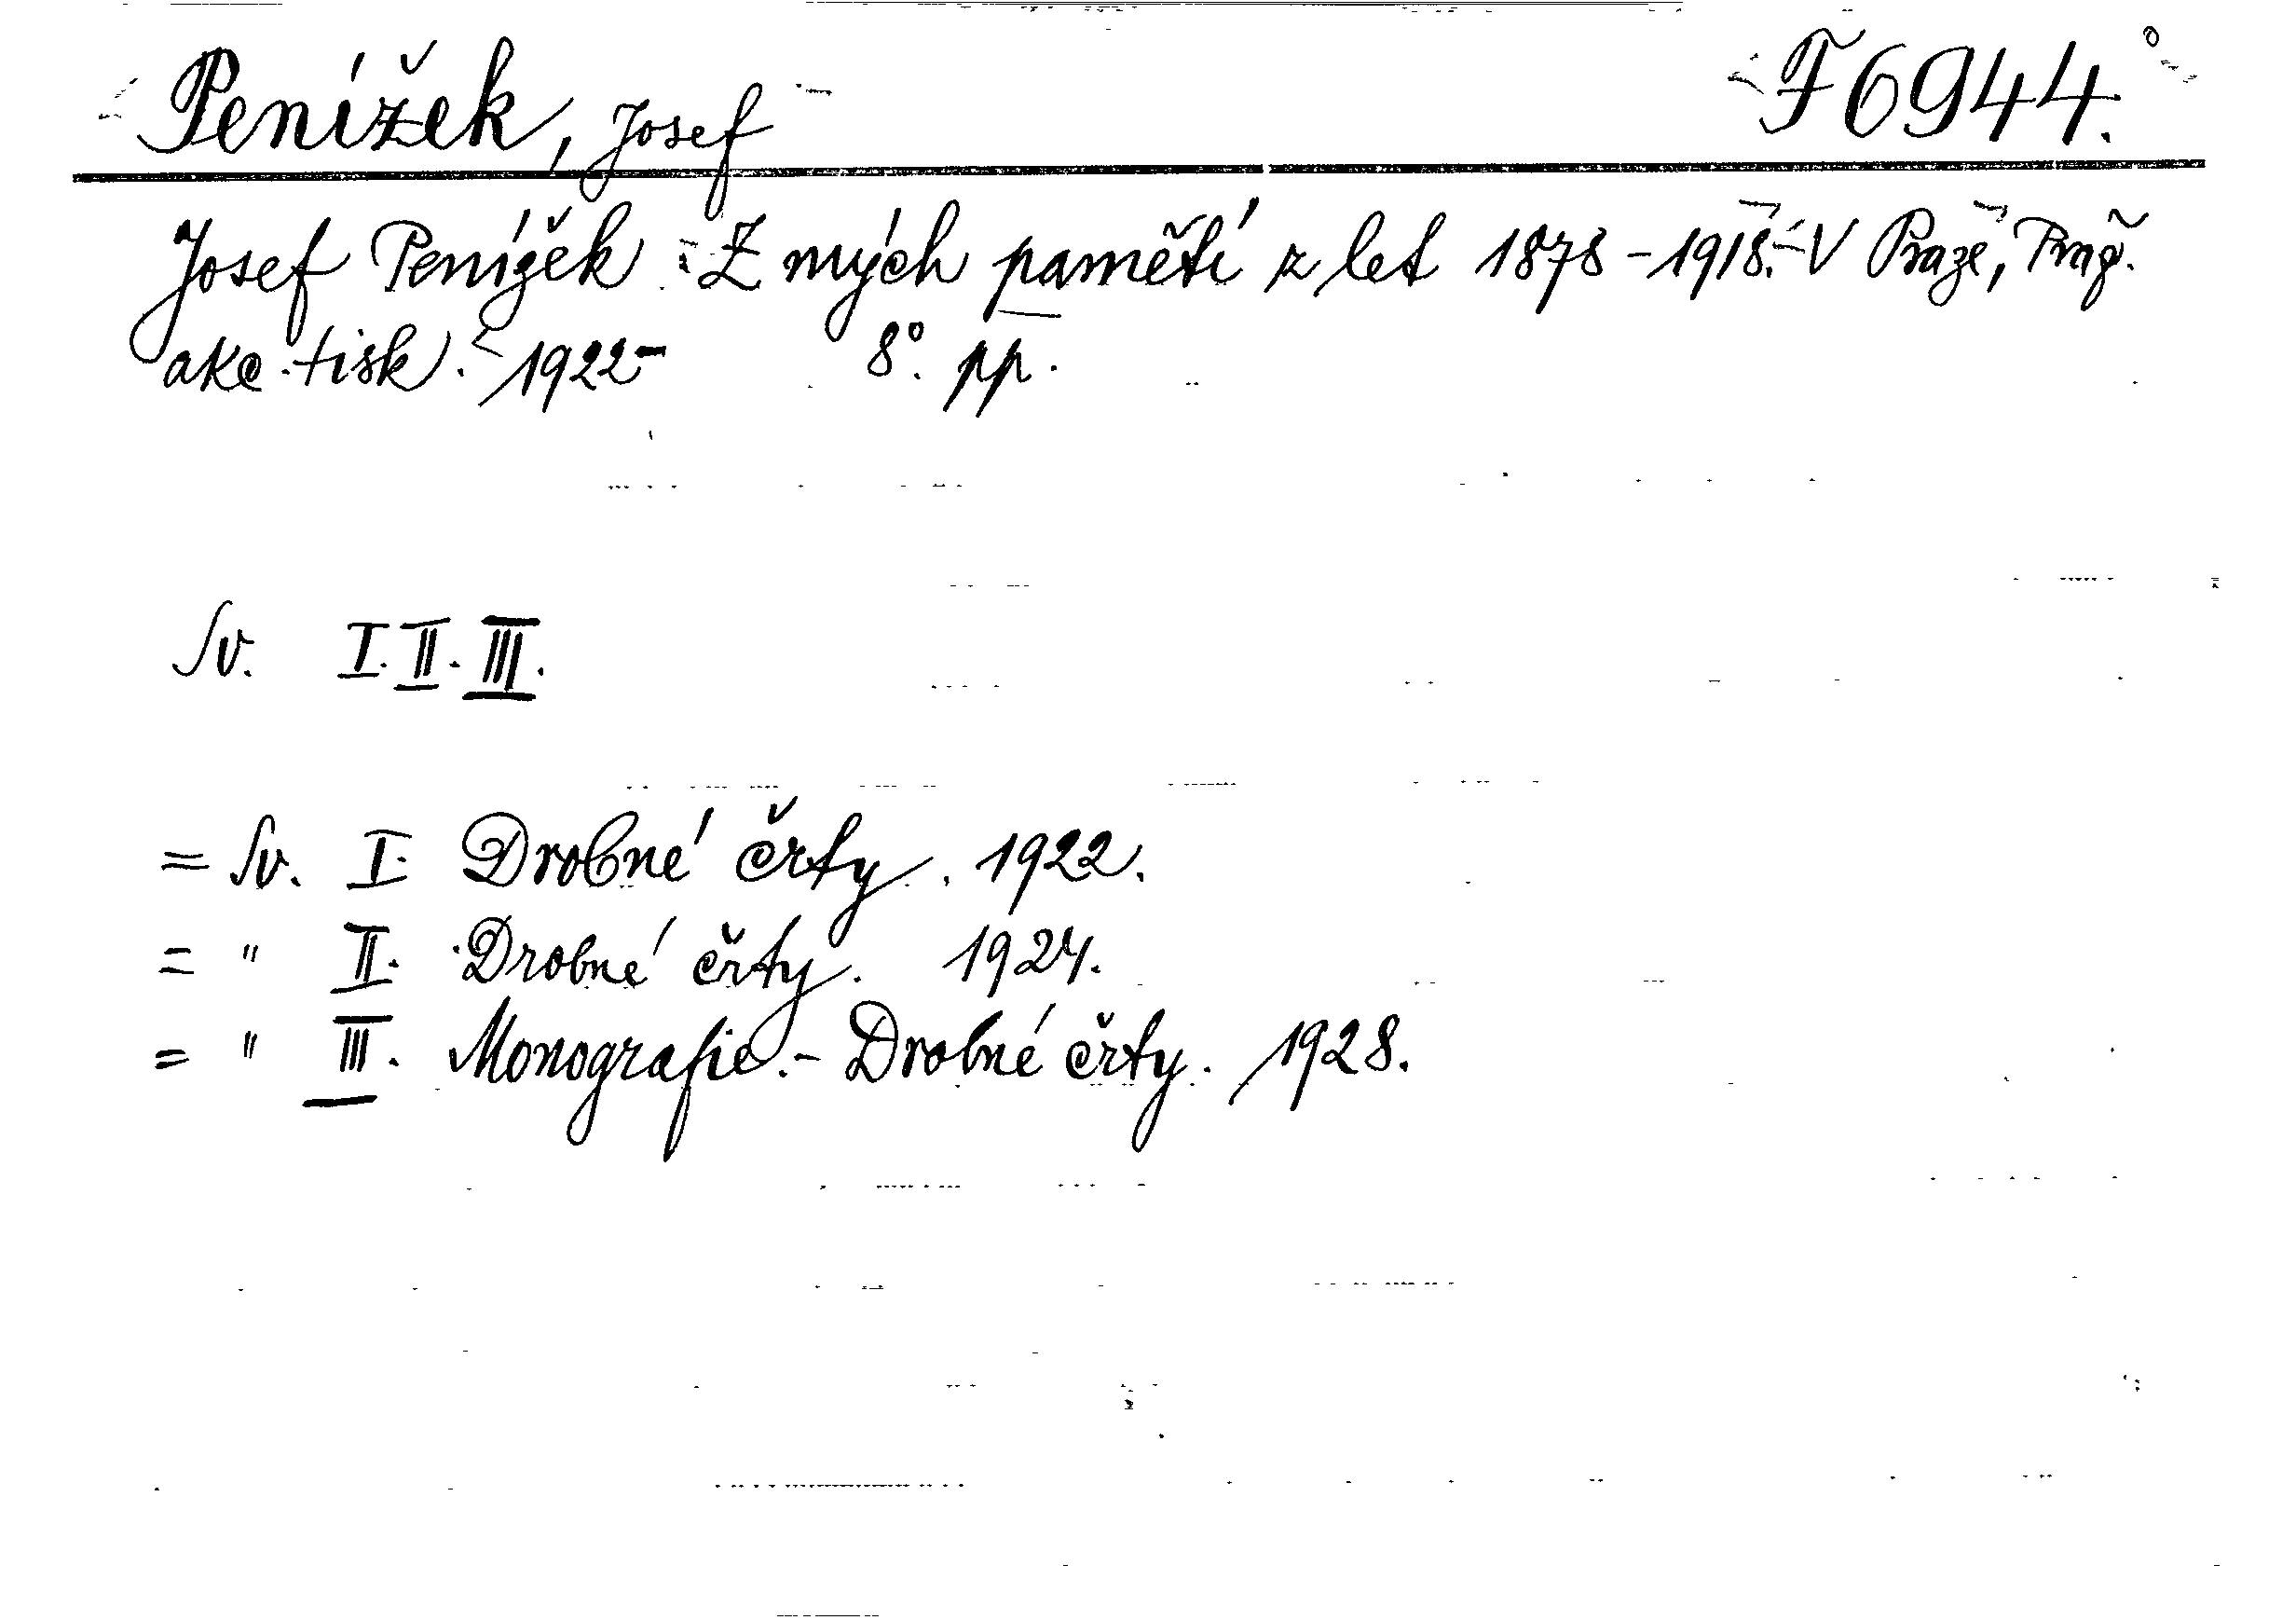 Penížek, Josef F 6944.°
Josef Penížek: Z mých pamětí z let 1878-1918.- V Praze, Praž.
akc. tisk. 1922- 8°. pp.
Sv. I. II. III.
= Sv. I. Drobné črty. 1922.
= " II. Drobné črty. 1924.
= " III. Monografie.- Drobné črty. 1928.